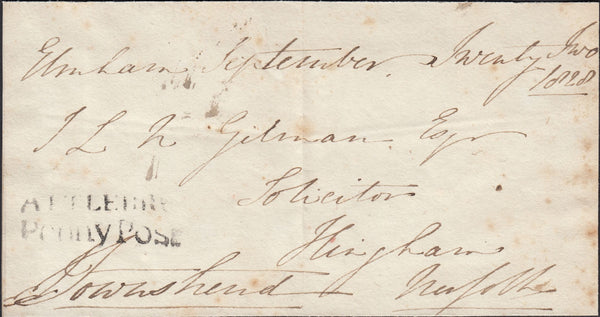 Elmham September Twenty Two
1828
S L N Gilman Esqr
Solicitor
Hingham
Penny Post
Townshend Norfolk